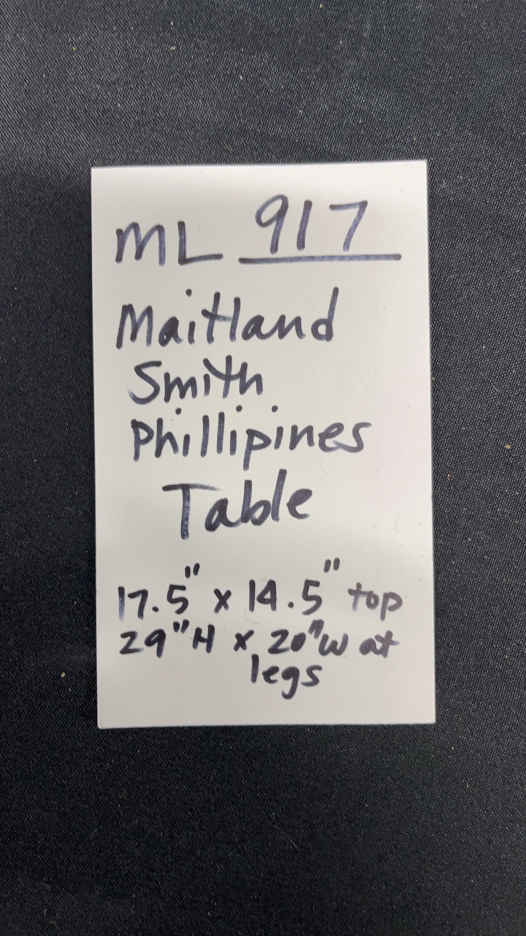 ML 917
Maitland
Smith
Phillipines
Table
17.5" x 14.5" top
29"H x 20"W at
legs